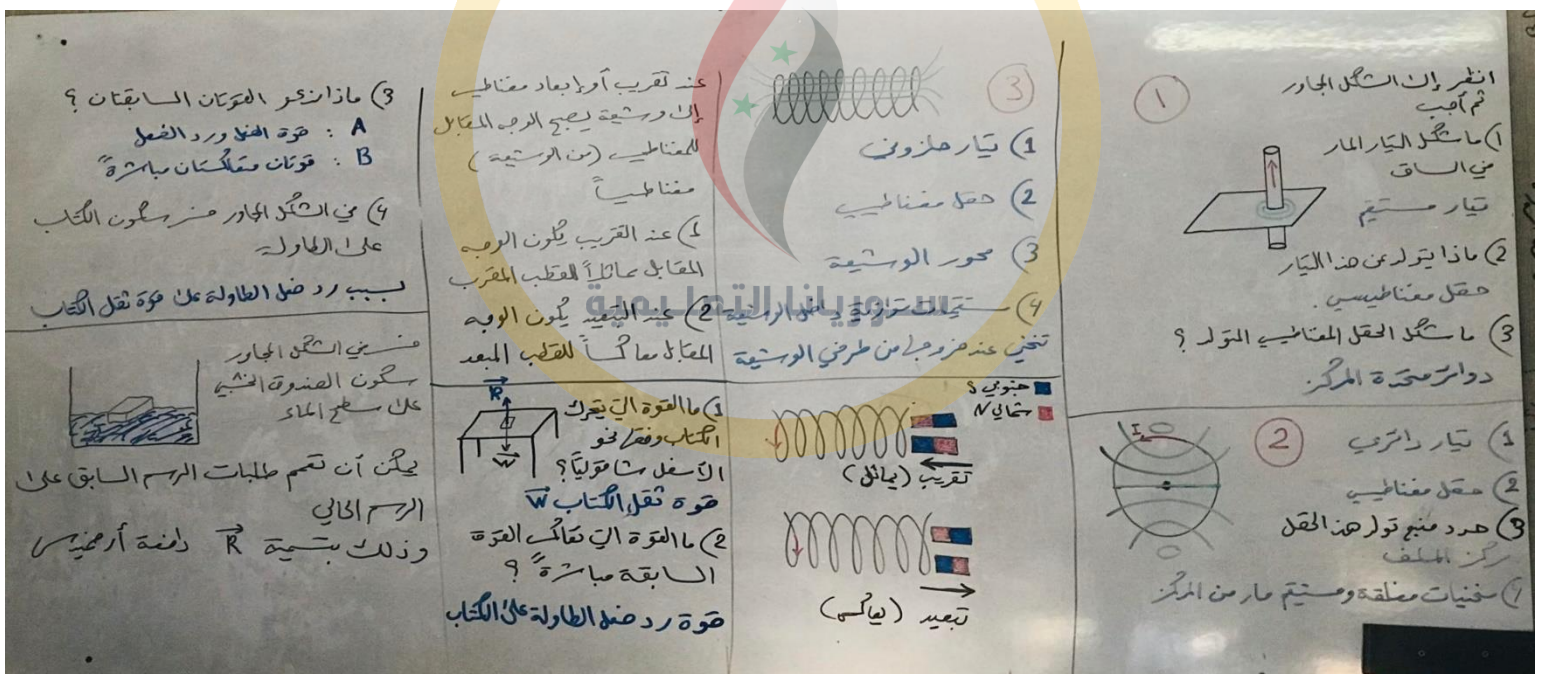 انظر إلى الشكل المجاور
ثم أجب
1
1) ما شكل التيار المار
في الساق
تيار مستقيم
2) ماذا يتولد عن هذا التيار
حقل مغناطيسي.
3) ما شكل الحقل المغناطيسي المتولد ؟
دوائر متحدة المركز
2
I
1) تيار دائري
2) حقل مغناطيسي
3) حدد منبع تولد هذا الحقل
مركز الملف
4) منحنيات مغلقة ومستقيم مار من المركز
3
1) تيار حلزوني
2) حقل مغناطيسي
3) محور الوشيعة
4) مستقيمات متوازية داخل الوشيعة
تنحني عند خروجها من طرفي الوشيعة
جنوبي S
شمالي N
تقريب (يماثل)
تبعيد (يعاكس)
عند تقريب أو إبعاد مغناطيس
إلى وشيعة يصبح الوجه المقابل
للمغناطيس (من الوشيعة)
مغناطيساً
1) عند القريب يكون الوجه
المقابل مماثلاً للقطب المقرب
2) عند التبعيد يكون الوجه
المقابل معاكساً للقطب المبعد
R
W
1) ما القوة التي تحرك
الكتاب وفقا نحو
الأسفل شاقولياً؟
قوة ثقل الكتاب W
2) ما القوة التي تعاكس القوة
السابقة مباشرةً ؟
قوة رد فعل الطاولة على الكتاب
3) ماذا ندعو القوتان السابقتان ؟
A : قوة الفعل ورد الفعل
B : قوتان متعاكستان مباشرةً
4) في الشكل المجاور فسر سكون الكتاب
على الطاولة
بسبب رد فعل الطاولة على قوة ثقل الكتاب
فسر في الشكل المجاور
سكون الصندوق الخشبي
على سطح الماء
يمكن أن تعمم طلبات الرسم السابق على
الرسم الحالي
وذلك بتسمية R دافعة أرخميدس
سوريانا التعليمية